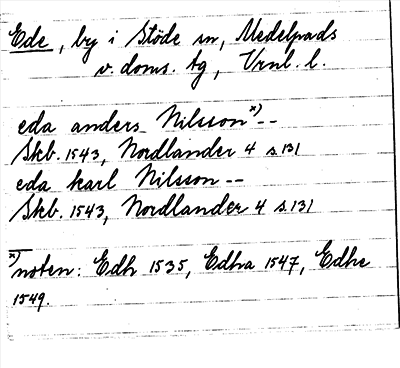 Ede, by i Stöde sn, Medelpads
v. doms. tg, Vrnl. l.
eda anders Nilsson x) --
Skb. 1543, Nordlander 4 s. 131
eda karl Nilsson --
Skb. 1543, Nordlander 4 s. 131
x) noten: Edh 1535, Edha 1547, Edhe
1549.